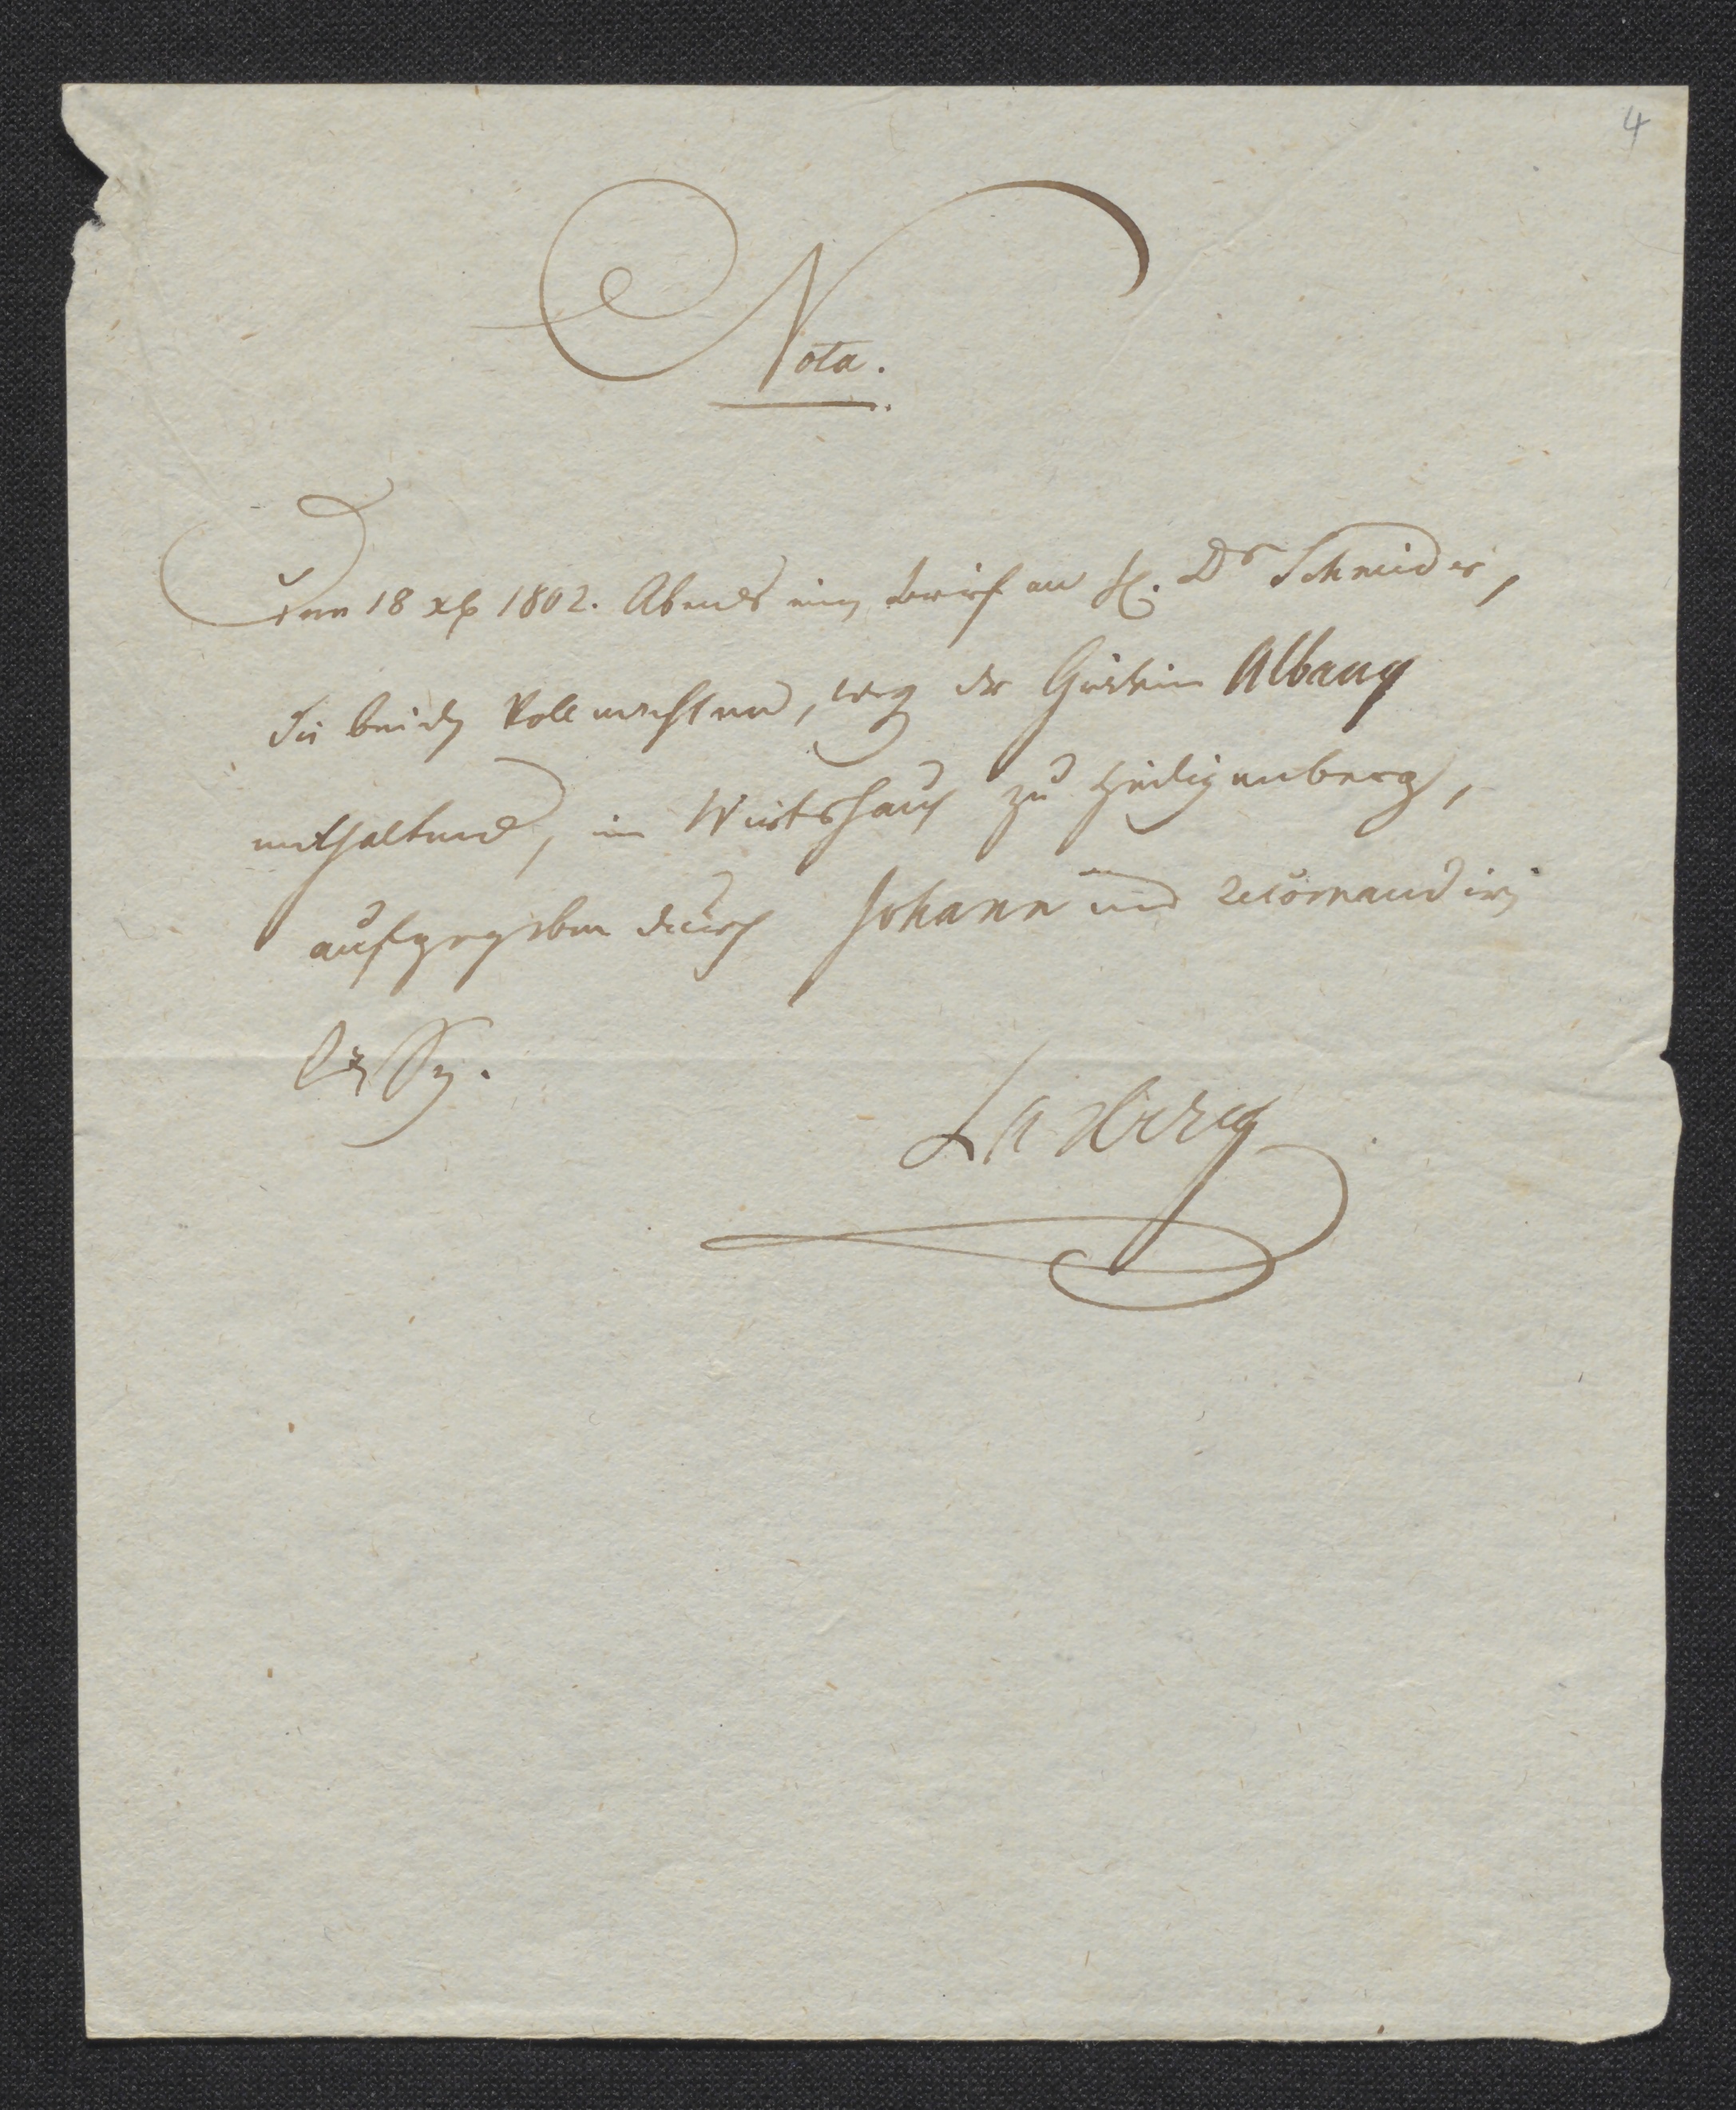 4
Nota.
Den 18 xb 1802. Abends ein Brief an H. Dr Schneider,
die beiden Vollmachten, weg der Gräfin Albany
enthaltend, im Wirtshaus zu Heiligenberg,
aufgegeben durch Johann und recomandiren
lassen.